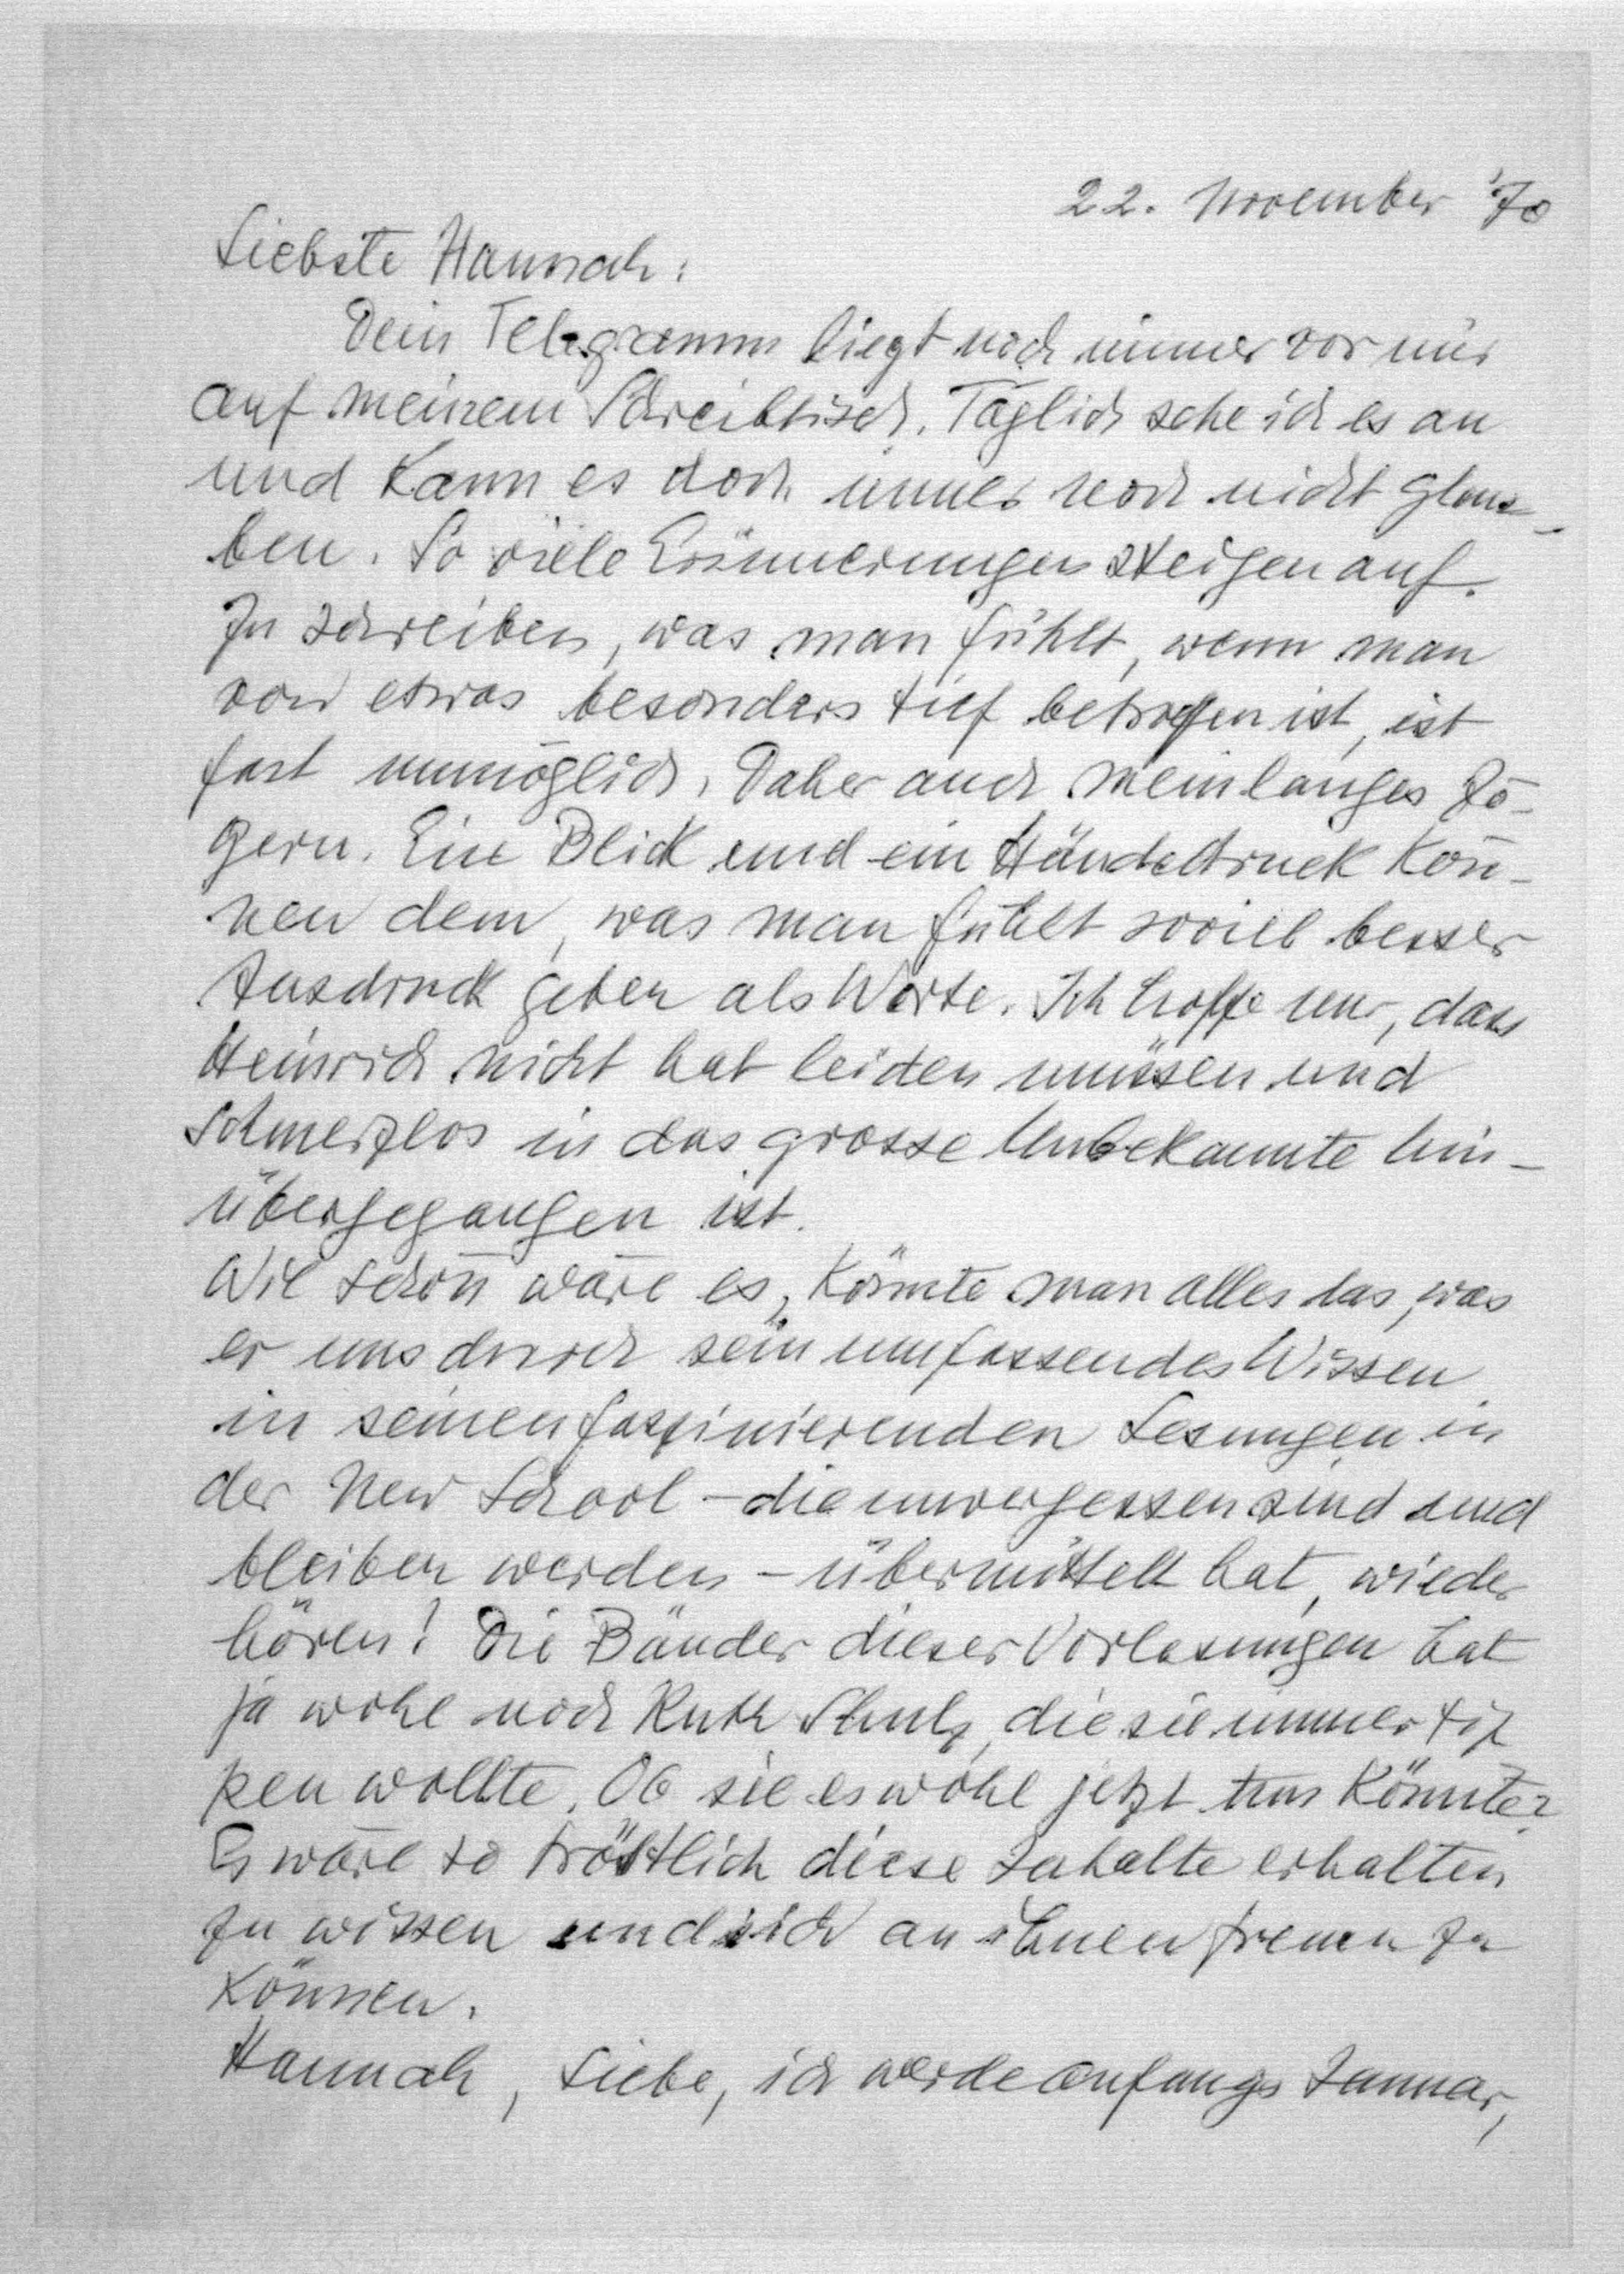 22. November '70
Liebste Hannah:
Dein Telegramm liegt noch immer vor mir
auf meinem Schreibtisch. Täglich sehe ich es an
und kann es doch immer noch nicht glau-
ben. So viele Erinnerungen steigen auf.
Zu schreiben, was man fühlt, wenn man
von etwas besonders tief betroffen ist, ist
fast unmöglich. Daher auch mein langes Zö-
gern. Ein Blick und ein Händedruck kön-
nen dem, was man fühlt soviel besser
Ausdruck geben als Worte. Ich hoffe nur, dass
Heinrich nicht hat leiden müssen und
schmerzlos in das grosse Unbekannte hin-
übergegangen ist.
Wie schön wäre es, könnte man alles das, was
er uns durch sein umfassendes Wissen
in seinen faszinierenden Lesungen in
der New School – die unvergessen sind und
bleiben werden – übermittelt hat, wieder
hören! Die Bänder dieser Vorlesungen hat
ja wohl noch Ruth Shulz, die sie immer tip
pen wollte. Ob sie es wohl jetzt tun könnte?
Es wäre so tröstlich diese Inhalte erhalten
zu wissen und sich an ihnen freuen zu
können.
Hannah, Liebe, ich werde anfangs Januar,